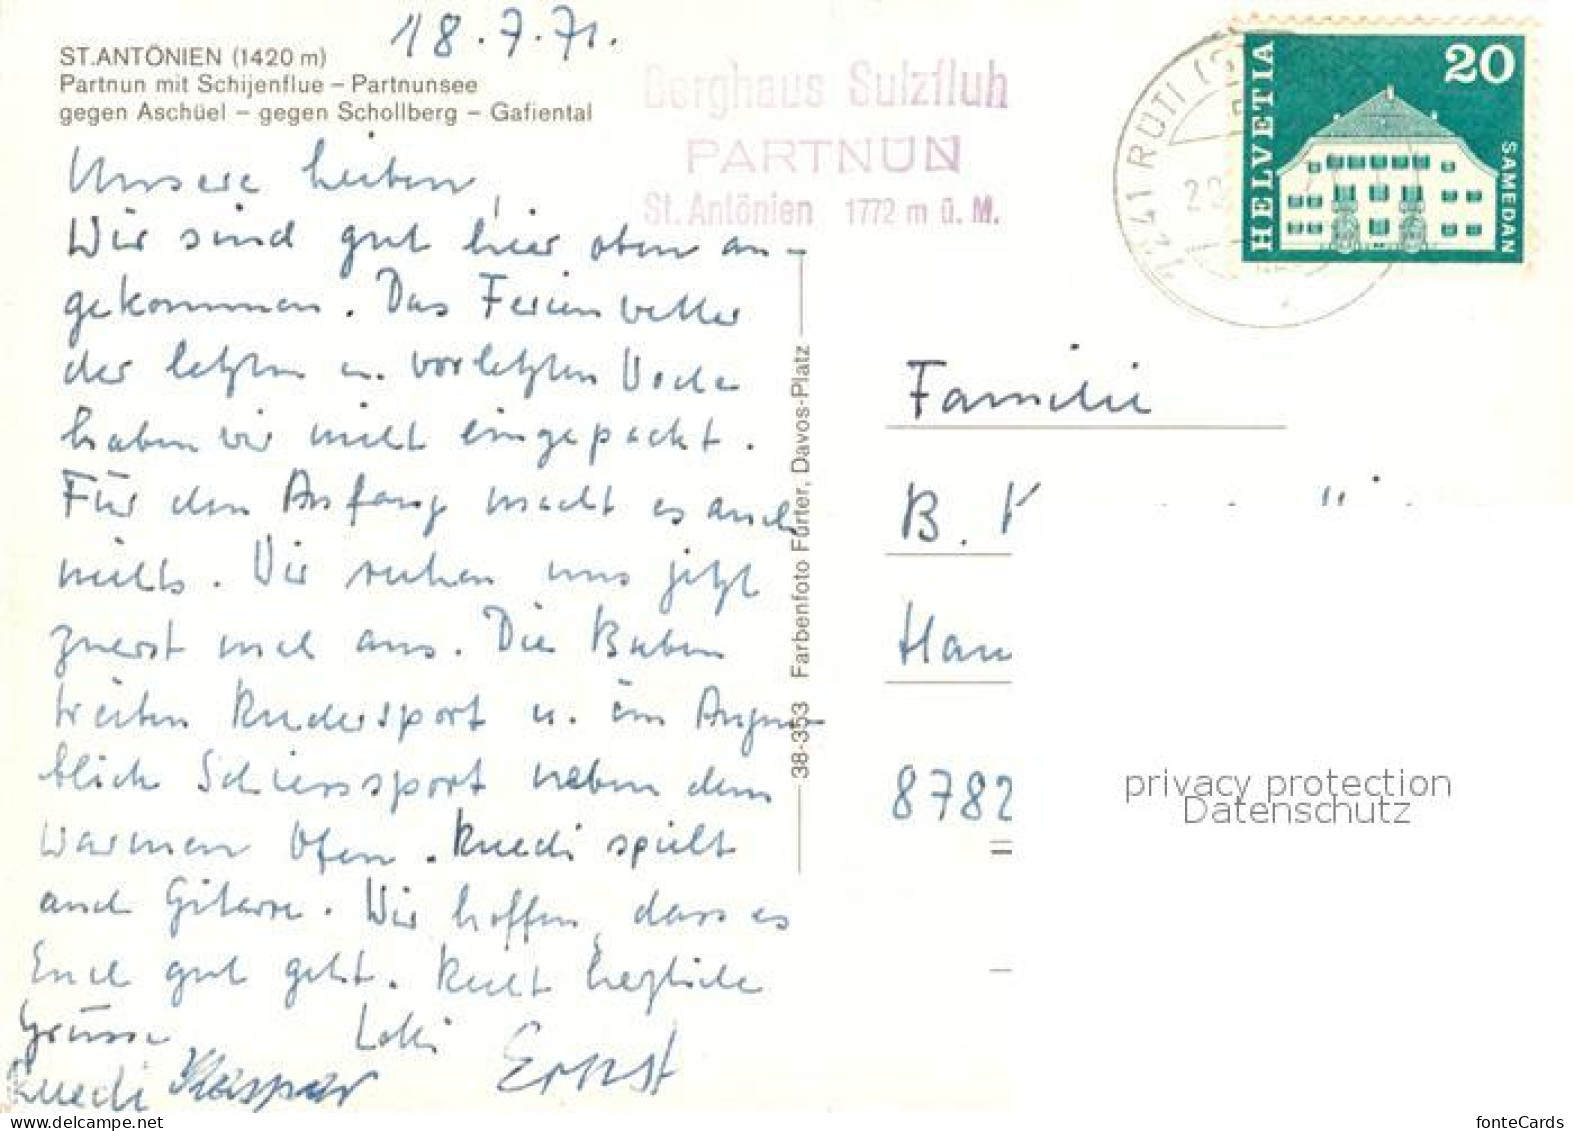 18.7.71.
ST. ANTÖNIEN (1420 m)
Partnun mit Schijenflue – Partnunsee
gegen Aschüel – gegen Schollberg – Gafiental
Berghaus Sulzfluh
PARTNUN
St. Antönien 1772 m ü. M.
7241 RÜTI (S
22
HELVETIA
20
SAMEDAN
Unsere Lieben,
Wir sind gut hier oben an-
gekommen. Das Ferienwetter
der letzten u. vorletzten Woche
haben wir nicht eingepackt.
Für den Anfang macht es auch
nichts. Wir ruhen uns jetzt
zuerst mal aus. Die Buben
treiben Rudersport u. im Augen-
blick Schiesssport neben dem
warmen Ofen. Ruedi spielt
auch Gitarre. Wir hoffen, dass es
Euch gut geht. Recht herzliche
Grüsse
Ruedi Kaspar Ernst
38-353 Farbenfoto Furter, Davos-Platz
Familie
B. K
Han
8782
privacy protection
Datenschutz
delcampe.net
fonteCards